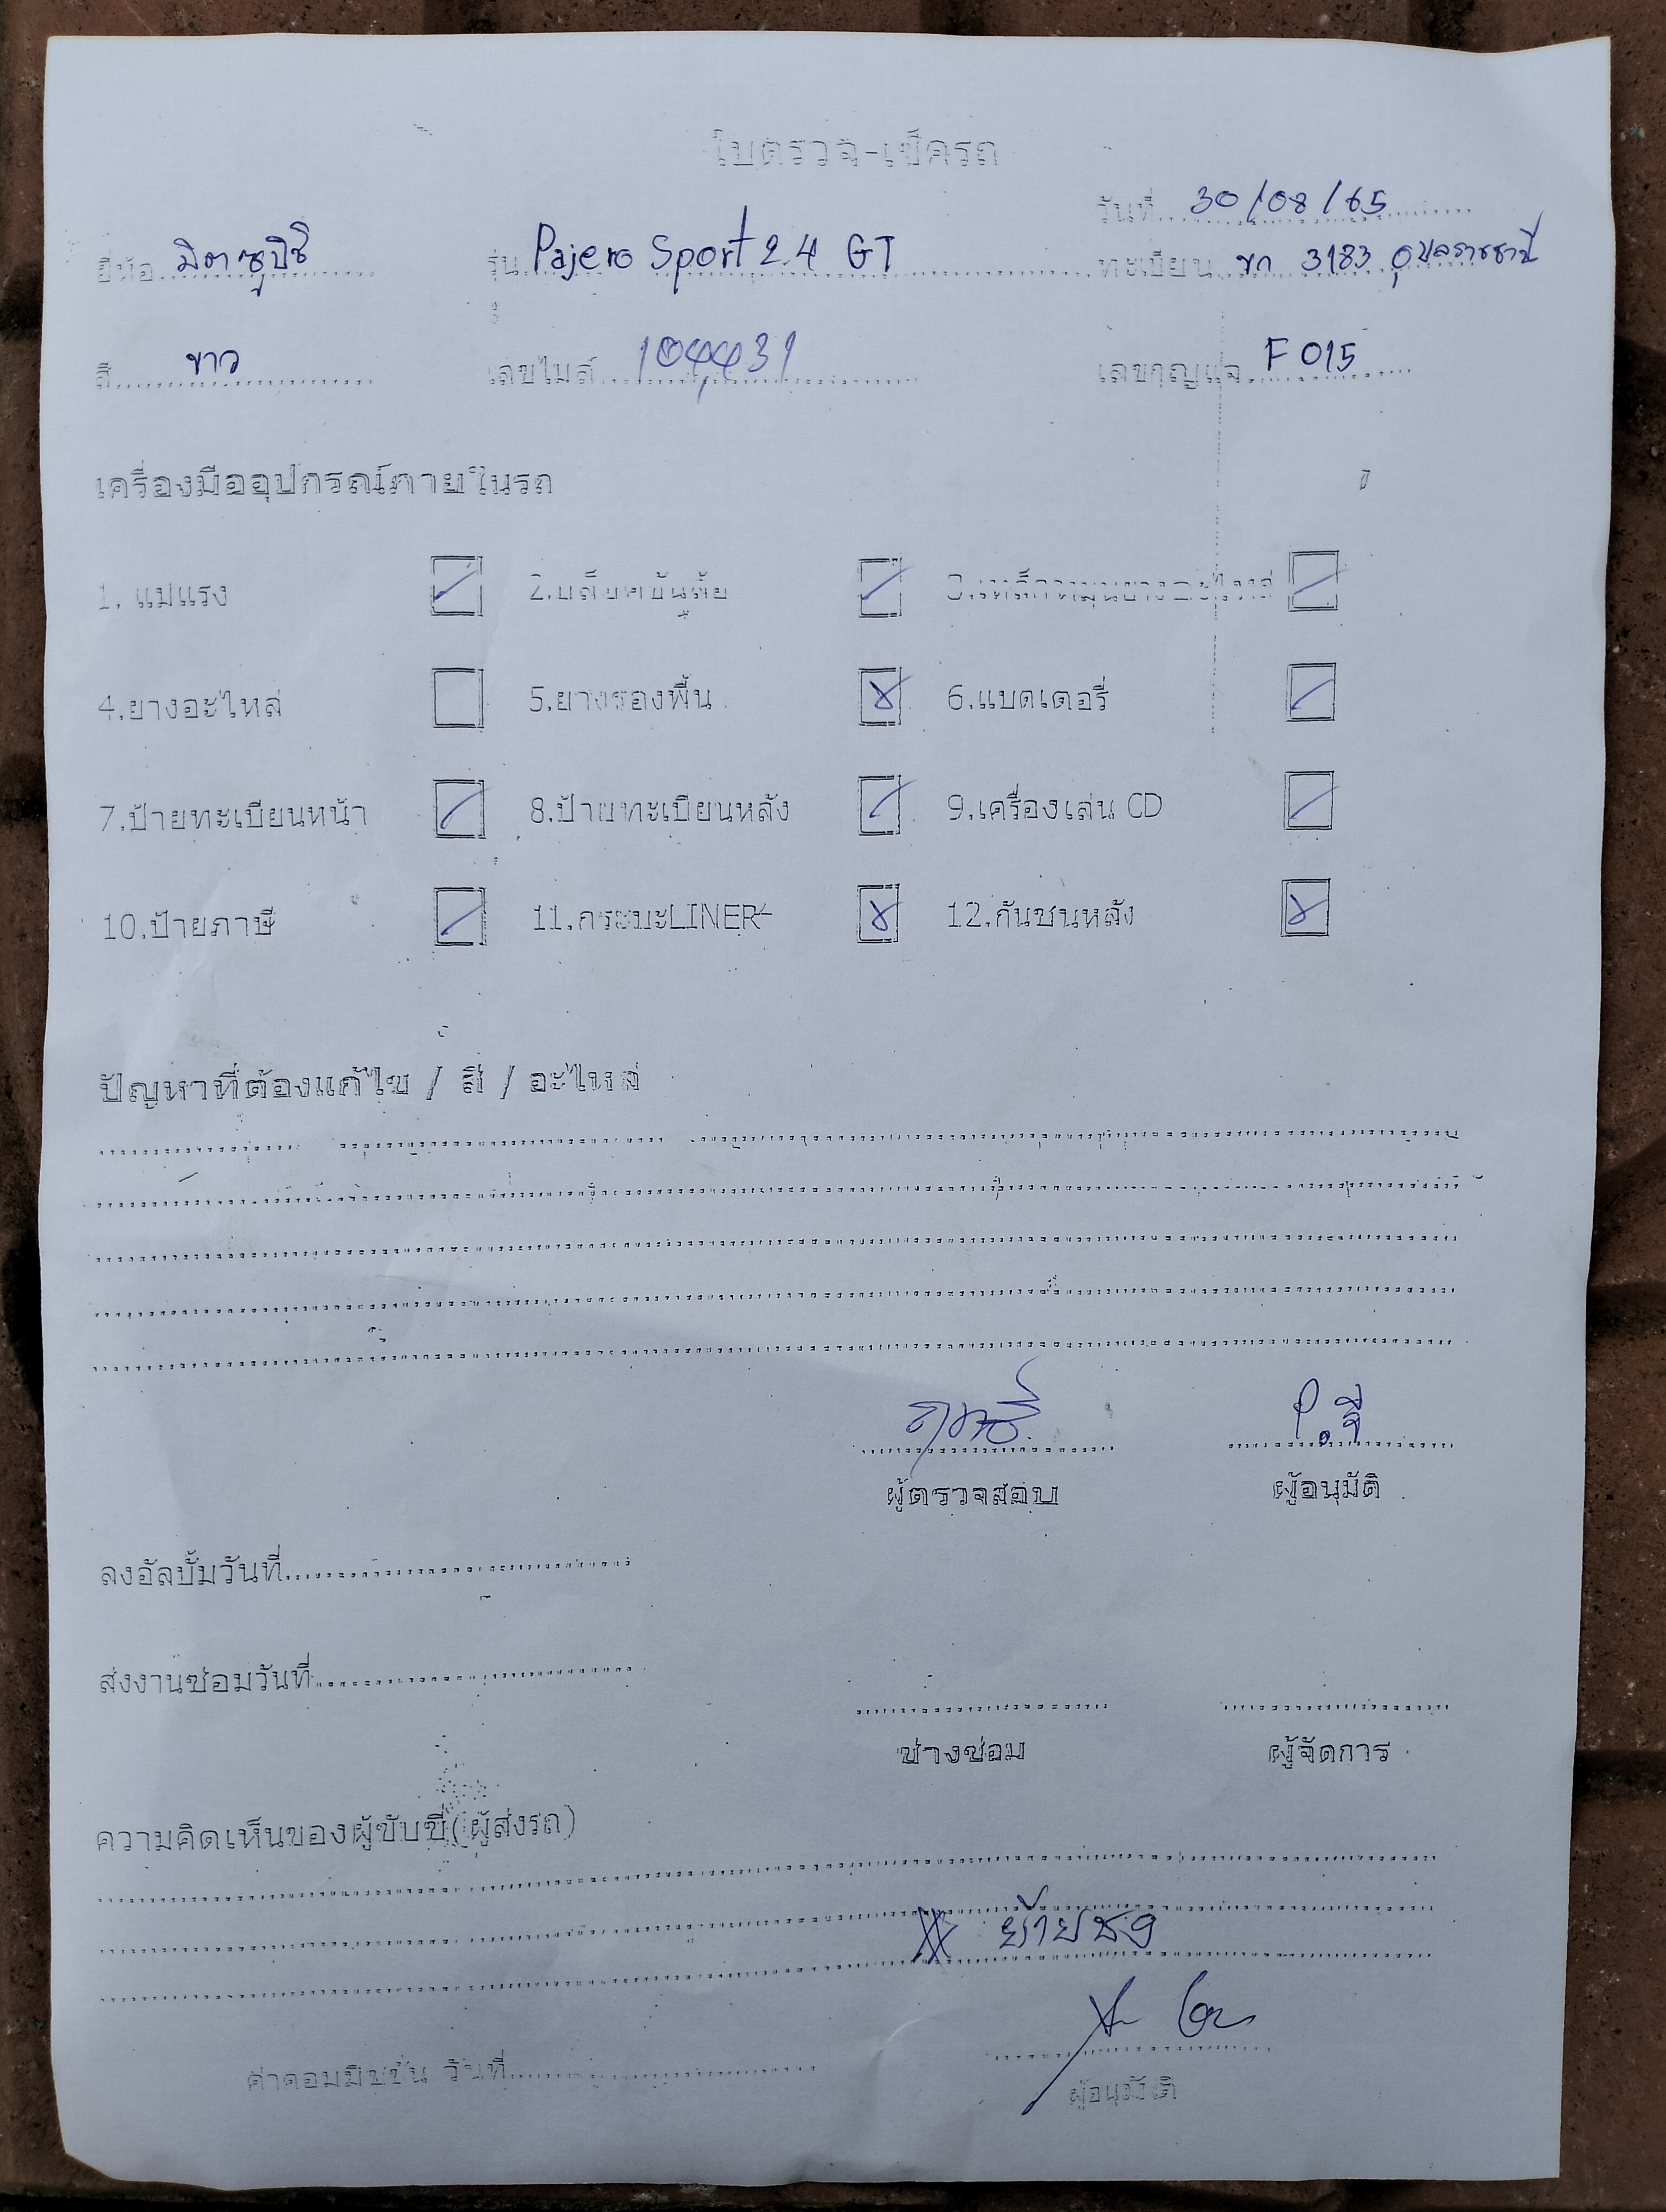 ใบตรวจ-เช็ครถ
วันที่ 30/08/65
ยี่ห้อ มิตซูบิชิ รุ่น Pajero Sport 2.4 GT ทะเบียน ขก 3183 อุบลราชธานี
สี ขาว เลขไมล์ 104431 เลขกุญแจ F015
เครื่องมืออุปกรณ์ภายในรถ
1. แม่แรง 2.บล็อคขันล้อ 3.เหล็กหมุนยางอะไหล่
4.ยางอะไหล่ 5.ยางรองพื้น 6.แบตเตอรี่
7.ป้ายทะเบียนหน้า 8.ป้ายทะเบียนหลัง 9.เครื่องเล่น CD
10.ป้ายภาษี 11.กระบะLINER 12.กันชนหลัง
ปัญหาที่ต้องแก้ไข / สี / อะไหล่
ผู้ตรวจสอบ ผู้อนุมัติ
ลงอัลบั้มวันที่
ส่งงานซ่อมวันที่
ช่างซ่อม ผู้จัดการ
ความคิดเห็นของผู้ขับขี่(ผู้ส่งรถ)
ค่าคอมมิชชั่น วันที่
ผู้อนุมัติ